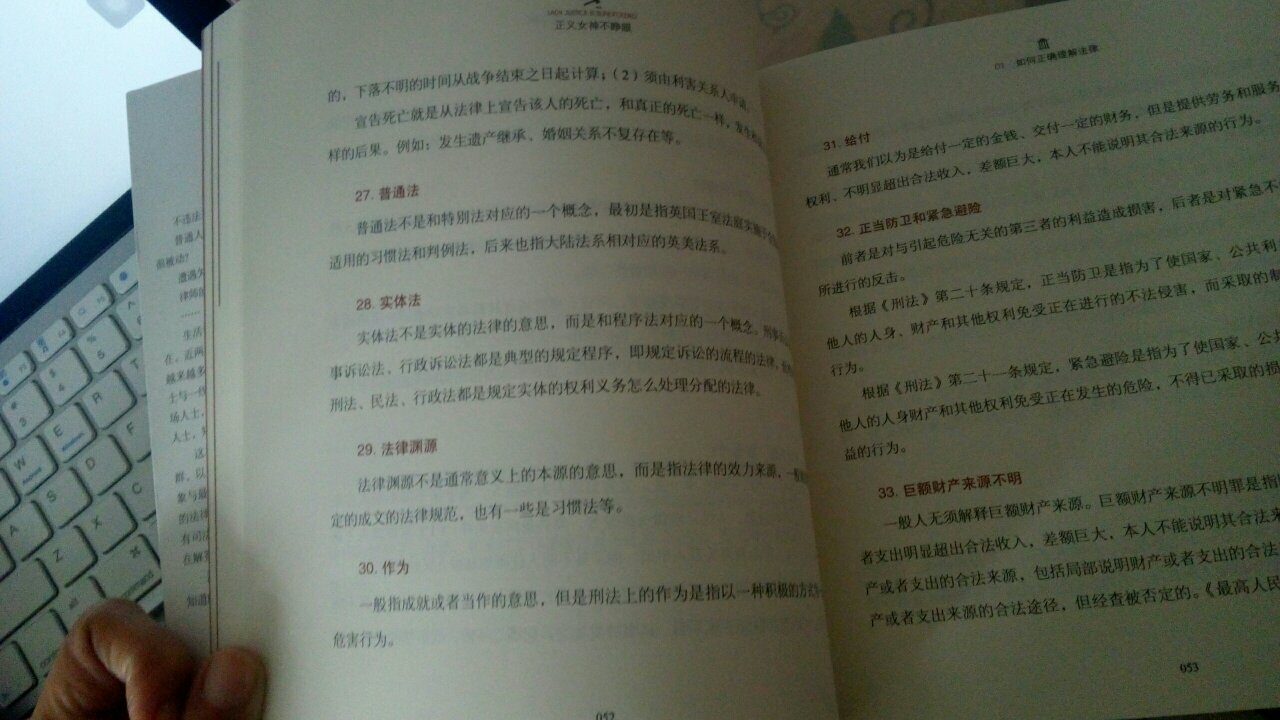 LADY JUSTICE IS
正义女神不睁眼
的，下落不明的时间从战争结束之日起计算；（2）须由利害关系人申请。
宣告死亡就是从法律上宣告该人的死亡，和真正的死亡一样，发生
样的后果。例如：发生遗产继承、婚姻关系不复存在等。
27. 普通法
普通法不是和特别法对应的一个概念，最初是指英国王室法庭实施于
适用的习惯法和判例法，后来也指大陆法系相对应的英美法系。
28. 实体法
实体法不是实体的法律的意思，而是和程序法对应的一个概念。刑事
事诉讼法、行政诉讼法都是典型的规定程序，即规定诉讼的流程的法律。
刑法、民法、行政法都是规定实体的权利义务怎么处理分配的法律。
29. 法律渊源
法律渊源不是通常意义上的本源的意思，而是指法律的效力来源，一般
定的成文的法律规范，也有一些是习惯法等。
30. 作为
一般指成就或者当作的意思，但是刑法上的作为是指以一种积极的方式
危害行为。
052
01 如何正确理解法律
31. 给付
通常我们以为是给付一定的金钱、交付一定的财务，但是提供劳务和服务
权利、不明显超出合法收入，差额巨大，本人不能说明其合法来源的行为。
32. 正当防卫和紧急避险
前者是对与引起危险无关的第三者的利益造成损害，后者是对紧急不
所进行的反击。
根据《刑法》第二十条规定，正当防卫是指为了使国家、公共利
他人的人身、财产和其他权利免受正在进行的不法侵害，而采取的制
行为。
根据《刑法》第二十一条规定，紧急避险是指为了使国家、公共
他人的人身财产和其他权利免受正在发生的危险，不得已采取的损
益的行为。
33. 巨额财产来源不明
一般人无须解释巨额财产来源。巨额财产来源不明罪是指
者支出明显超出合法收入，差额巨大，本人不能说明其合法来
产或者支出的合法来源，包括局部说明财产或者支出的合法
产或者支出来源的合法途径，但经查被否定的。《最高人民
053
不违法
普通人
很被动？
遭遇
律师
……
生活
在，近两
越来越多
士与一些
场人士，
人士，
这
群，以
象与最
的法律
有司法
在解
知道
# 3
$ 4
% 5
W
E
R
A
S
D
F
Z
X
C
alt
command